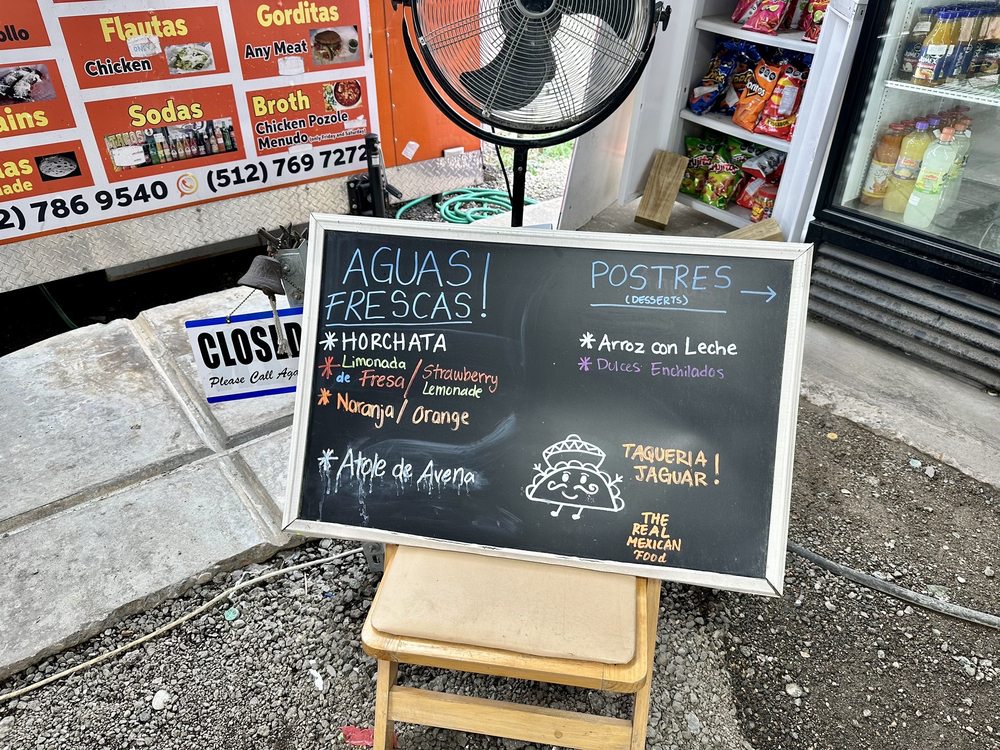 Flautas
Chicken
Gorditas
Any Meat
Sodas
Broth
Chicken Pozole
Menudo (only Friday and Saturday)
786 9540 (512) 769 7272
CLOSED
Please Call Aga
AGUAS
FRESCAS!
* HORCHATA
* Limonada
de Fresa / Strawberry
Lemonade
* Naranja / Orange
* Atole de Avena
POSTRES →
(DESSERTS)
* Arroz con Leche
* Dulces Enchilados
TAQUERIA
JAGUAR!
THE
REAL
MEXICAN
FOOD